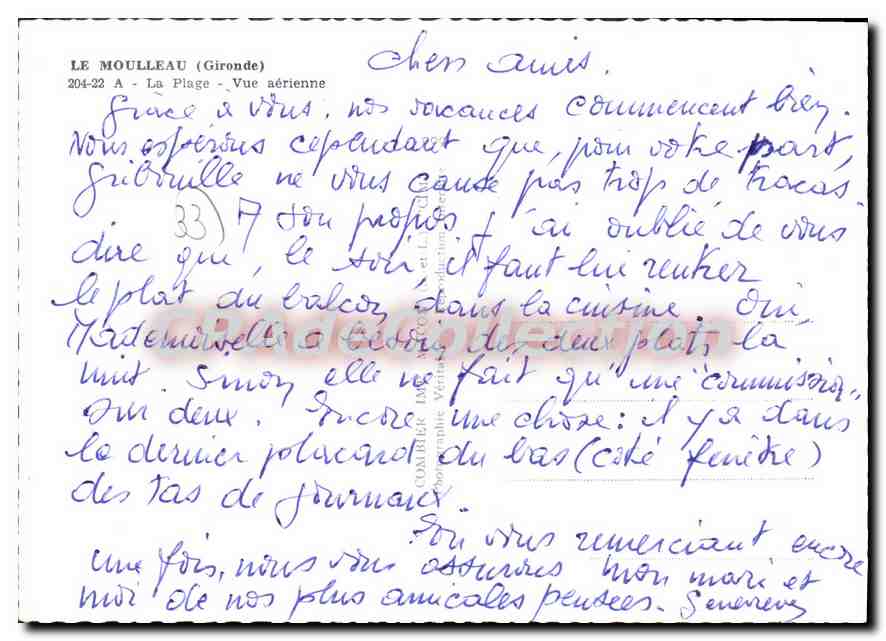 LE MOULLEAU (Gironde)
204-22 A - La Plage - Vue aérienne
Chers amis.
Grâce à vous, nos vacances commencent bien.
Nous espérons cependant que, pour votre part,
Gribouille ne vous cause pas trop de tracas
33) A son propos j'ai oublié de vous
dire que, le soir, il faut lui rentrer
le plat du balcon dans la cuisine. Oui,
Mademoiselle a besoin des deux plats la
nuit. Sinon elle ne fait qu'une "commission"
sur deux. Encore une chose : il y a dans
le dernier placard du bas (côté fenêtre)
des tas de journaux.
En vous remerciant encore
une fois, nous vous assurons mon mari et
moi de nos plus amicales pensées. Geneviève
COMBIER IMP. MACON
Photographie Véritable
reproduction interdite
CPADeCollection